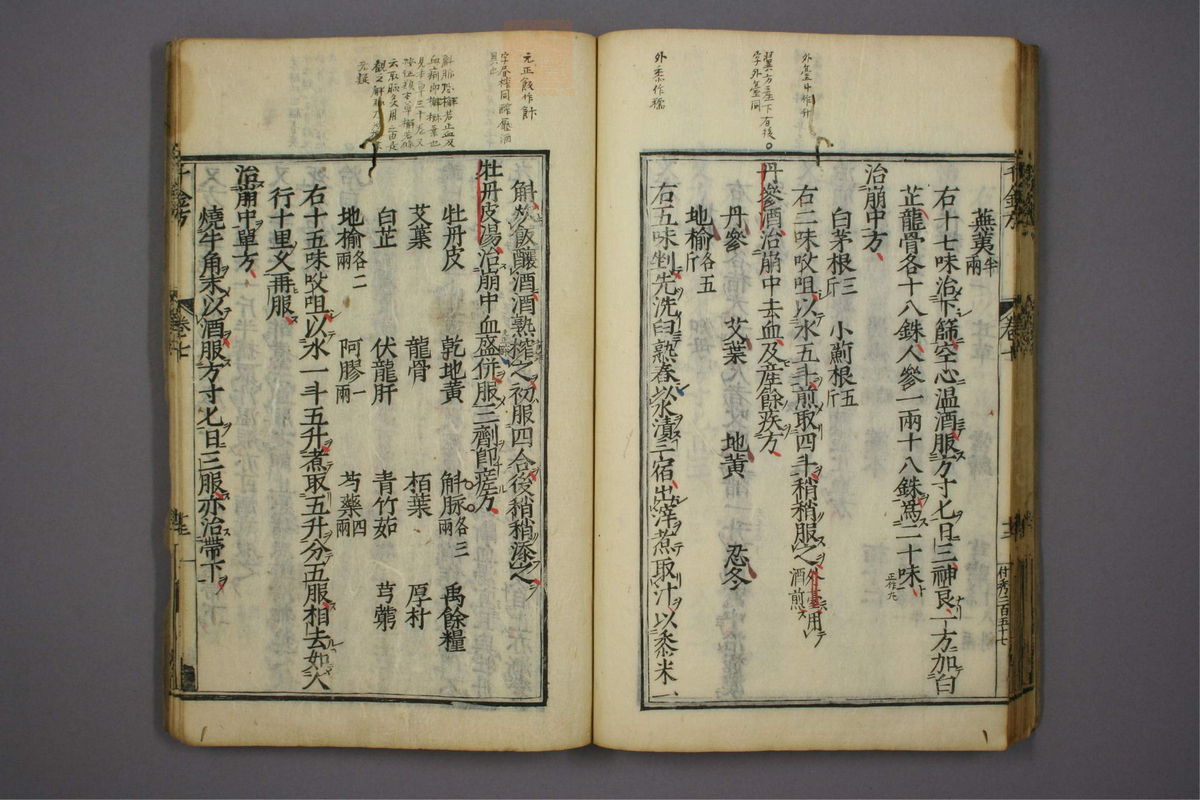 外臺斗作升
翼方產下有後
字外臺同
外黍作糯
蕪荑半兩
右十七味治下篩空心温酒服方寸匕日三神良一方加白
芷龍骨各十八銖人參一兩十八銖爲二十味
正作九
治崩中方
白茅根三斤 小薊根五斤
右二味㕮咀以水五斗煎取四斗稍稍服之外臺用酒煎
丹參酒治崩中去血及産餘疾方
丹參 艾葉 地黄 忍冬
地榆各五斤
右五味剉先洗臼熟舂以水漬三宿出滓煮取汁以黍米一
千金方 卷七
元正飯作飰
斛炊飯釀酒酒熟搾之初服四合後稍稍添之
牡丹皮湯治崩中血盛併服三劑即瘥方
牡丹皮 乾地黄 斛脉各三兩 禹餘糧
艾葉 龍骨 栢葉 厚朴
白芷 伏龍肝 青竹茹 芎藭
地榆各二兩 阿膠一兩 芍藥四兩
右十五味㕮咀以水一斗五升煮取五升分五服相去如人
行十里又再服
治崩中單方
燒牛角末以酒服方寸匕日三服亦治帶下
千金方 卷七